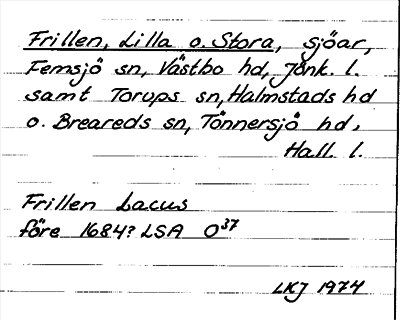 Frillen, Lilla o. Stora, sjöar,
Femsjö sn, Västbo hd, Jönk. l.
samt Torups sn, Halmstads hd
o. Breareds sn, Tönnersjö hd,
Hall. l.
Frillen Lacus
före 1684? LSA O³⁷
LKJ 1974